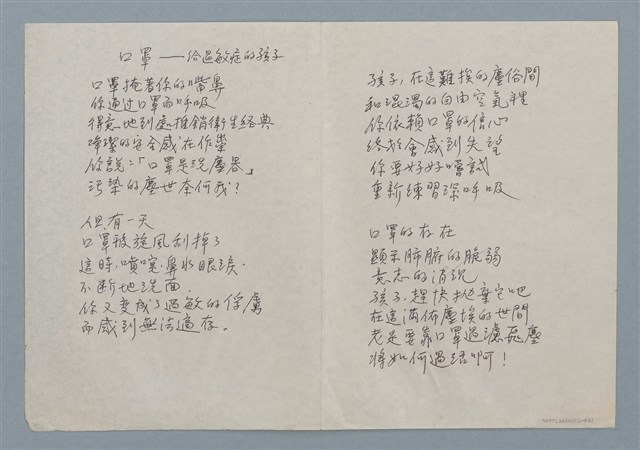 口罩——給過敏症的孩子
口罩掩著你的嘴鼻
你通过口罩而呼吸
得意地到處推銷衛生經典
漳潔的安全感在作祟
你說：「口罩是洗塵器」
污染的塵世奈何我？
但有一天
口罩被旋風刮掉了
這時，噴嚏、鼻水眼淚、
不断地洗面
你又变成了过敏的俘虜
而感到無法適存。
孩子，在這難挨的塵俗間
和混濁的自由空氣裡
你依賴口罩的信心
終於會感到失望
你要好好嚐試
重新練習深呼吸
口罩的存在
顯示肺腑的脆弱
意志的消沉
孩子，趕快拋棄它吧
在這滿佈塵埃的世間
老是要靠口罩過濾灰塵
將如何過活啊！